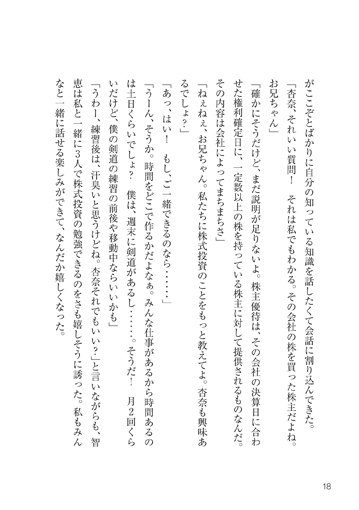 がここぞとばかりに自分の知っている知識を話したくて会話に割り込んできた。
「杏奈、それいい質問！　それは私でもわかる。その会社の株を買った株主だよね。
お兄ちゃん」
「確かにそうだけど、まだ説明が足りないよ。株主優待は、その会社の決算日に合わ
せた権利確定日に、一定数以上の株を持っている株主に対して提供されるものなんだ。
その内容は会社によってまちまちさ」
「ねぇねぇ、お兄ちゃん。私たちに株式投資のことをもっと教えてよ。杏奈も興味あ
るでしょ？」
「あっ、はい！　もし、ご一緒できるのなら・・・・」
「うーん、そうか。時間をどこで作るかだよなぁ。みんな仕事があるから時間あるの
は土日くらいでしょ？　僕は、週末に剣道があるし・・・・・。そうだ！　月２回くら
いだけど、僕の剣道の練習の前後や移動中ならいいかも」
「うわー、練習後は、汗臭いと思うけどね。杏奈それでもいい？」と言いながらも、智
恵は私と一緒に３人で株式投資の勉強できるのをさも嬉しそうに誘った。私もみん
なと一緒に話せる楽しみができて、なんだか嬉しくなった。
18